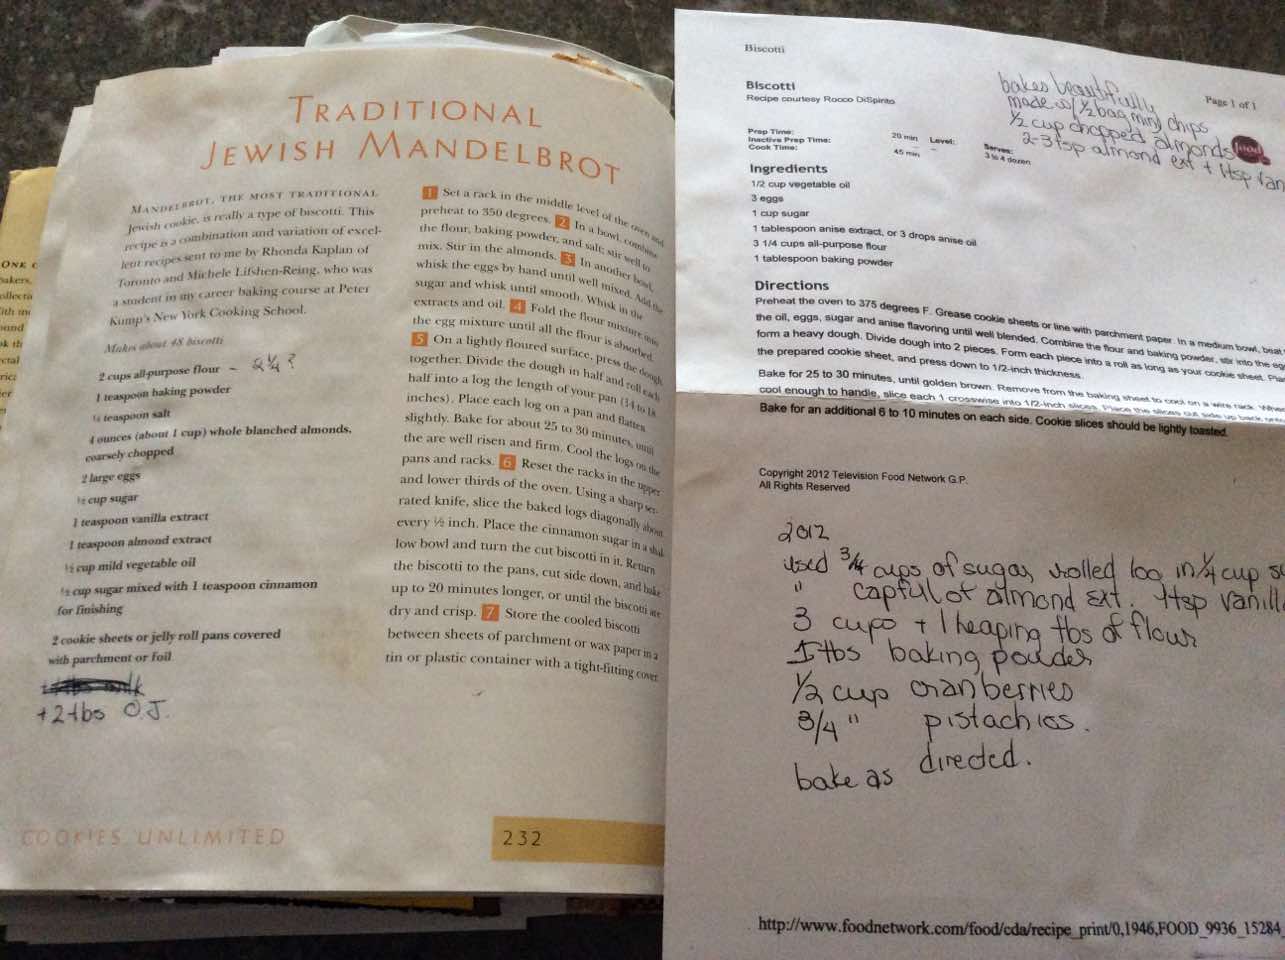 TRADITIONAL
JEWISH MANDELBROT
MANDELBROT, THE MOST TRADITIONAL
Jewish cookie, is really a type of biscotti. This
recipe is a combination and variation of excel-
lent recipes sent to me by Rhonda Kaplan of
Toronto and Michele Lifshen-Reing, who was
a student in my career baking course at Peter
Kump's New York Cooking School.
Makes about 48 biscotti
2 cups all-purpose flour – 2 1/4 ?
1 teaspoon baking powder
¼ teaspoon salt
4 ounces (about 1 cup) whole blanched almonds,
coarsely chopped
2 large eggs
½ cup sugar
1 teaspoon vanilla extract
1 teaspoon almond extract
½ cup mild vegetable oil
½ cup sugar mixed with 1 teaspoon cinnamon
for finishing
2 cookie sheets or jelly roll pans covered
with parchment or foil
+2 tbs O.J.
1 Set a rack in the middle level of the oven and
preheat to 350 degrees. 2 In a bowl, combine
the flour, baking powder, and salt; stir well to
mix. Stir in the almonds. 3 In another bowl,
whisk the eggs by hand until well mixed. Add the
sugar and whisk until smooth. Whisk in the
extracts and oil. 4 Fold the flour mixture into
the egg mixture until all the flour is absorbed.
5 On a lightly floured surface, press the dough
together. Divide the dough in half and roll each
half into a log the length of your pan (14 to 18
inches). Place each log on a pan and flatten
slightly. Bake for about 25 to 30 minutes, until
the are well risen and firm. Cool the logs on the
pans and racks. 6 Reset the racks in the upper
and lower thirds of the oven. Using a sharp ser-
rated knife, slice the baked logs diagonally about
every ½ inch. Place the cinnamon sugar in a shal-
low bowl and turn the cut biscotti in it. Return
the biscotti to the pans, cut side down, and bake
up to 20 minutes longer, or until the biscotti are
dry and crisp. 7 Store the cooled biscotti
between sheets of parchment or wax paper in a
tin or plastic container with a tight-fitting cover.
COOKIES UNLIMITED
232
Biscotti
Page 1 of 1
Biscotti
Recipe courtesy Rocco DiSpirito
bakes beautifully
made w/ ½ bag mini chips
½ cup chopped almonds
2-3 tsp almond ext + 1 tsp van
food
Prep Time: 20 min Level: Serves:
Inactive Prep Time: -- -- 3 to 4 dozen
Cook Time: 45 min
Ingredients
1/2 cup vegetable oil
3 eggs
1 cup sugar
1 tablespoon anise extract, or 3 drops anise oil
3 1/4 cups all-purpose flour
1 tablespoon baking powder
Directions
Preheat the oven to 375 degrees F. Grease cookie sheets or line with parchment paper. In a medium bowl, beat
the oil, eggs, sugar and anise flavoring until well blended. Combine the flour and baking powder, stir into the eg
form a heavy dough. Divide dough into 2 pieces. Form each piece into a roll as long as your cookie sheet. Pl
the prepared cookie sheet, and press down to 1/2-inch thickness.
Bake for 25 to 30 minutes, until golden brown. Remove from the baking sheet to cool on a wire rack. Whe
cool enough to handle, slice each 1 crosswise into 1/2-inch slices. Place the slices cut side up back onto
Bake for an additional 6 to 10 minutes on each side. Cookie slices should be lightly toasted.
Copyright 2012 Television Food Network G.P.
All Rights Reserved
2012
used 3/4 cups of sugar, rolled log in 1/4 cup su
" capful of almond ext. 1 tsp vanilla
3 cups + 1 heaping tbs of flour
1 tbs baking powder
1/2 cup cranberries
3/4 " pistachios.
bake as directed.
http://www.foodnetwork.com/food/cda/recipe_print/0,1946,FOOD_9936_15284_